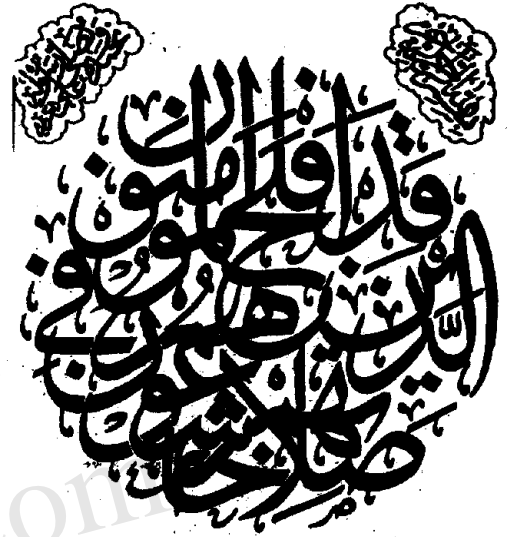 قد أفلح المؤمنون
الذين هم في
صلاتهم خاشعون
om